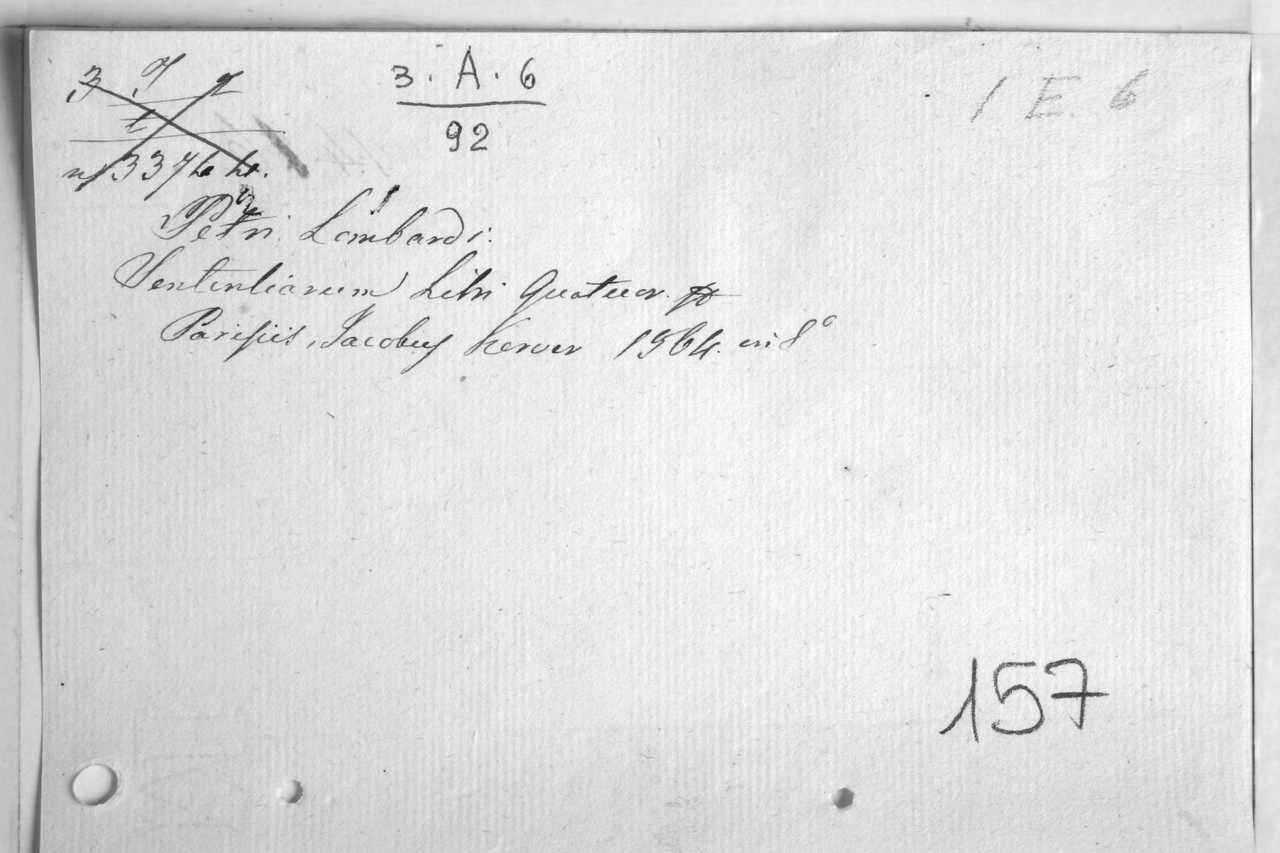 3 . A . 6
92
1 E. 6
Petri Lombardi
Sententiarum Libri Quatuor.
Parisiis, Jacobus Kerver 1564. in 8°
157